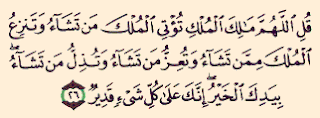 قُلِ ٱللَّهُمَّ مَٰلِكَ ٱلۡمُلۡكِ تُؤۡتِي ٱلۡمُلۡكَ مَن تَشَآءُ وَتَنزِعُ
ٱلۡمُلۡكَ مِمَّن تَشَآءُ وَتُعِزُّ مَن تَشَآءُ وَتُذِلُّ مَن تَشَآءُۖ
بِيَدِكَ ٱلۡخَيۡرُۖ إِنَّكَ عَلَىٰ كُلِّ شَيۡءٖ قَدِيرٞ ٢٦